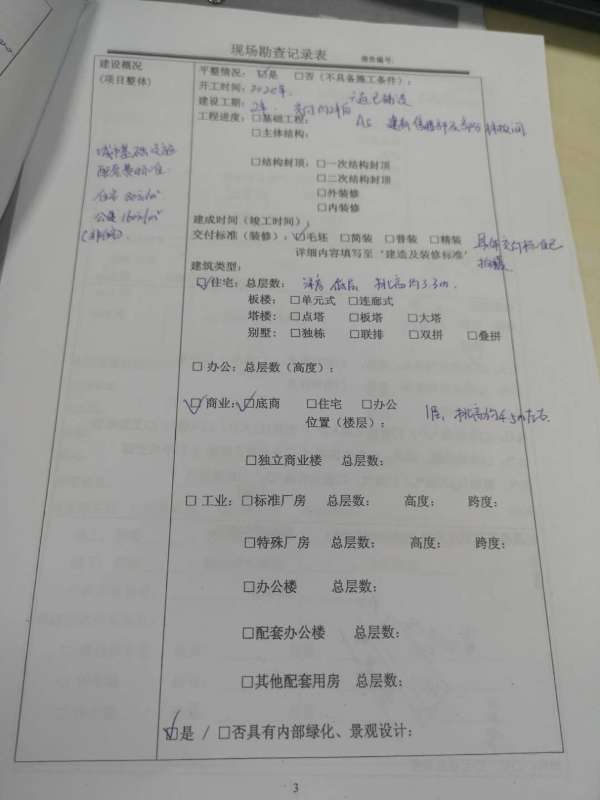 现场勘查记录表 报告编号:
建设概况
(项目整体)
平整情况: ☑是 □否(不具备施工条件):
开工时间: 2020年.
建设工期: 2年.
工程进度: □基础工程:
□主体结构:
□结构封顶: □一次结构封顶
□二次结构封顶
□外装修
□内装修
城市基础设施
配套费标准:
住宅 80元/㎡
公建 160元/㎡
建成时间(竣工时间):
交付标准(装修): ☑毛坯 □简装 □普装 □精装
详细内容填写至‘建造及装修标准’
具体交付标准已
拍摄
建筑类型:
☑住宅: 总层数: 洋房 挑高约3.3m.
板楼: □单元式 □连廊式
塔楼: □点塔 □板塔 □大塔
别墅: □独栋 □联排 □双拼 □叠拼
□办公: 总层数(高度):
☑商业: ☑底商 □住宅 □办公
位置(楼层):
1层, 挑高约4.5m左右.
□独立商业楼 总层数:
□工业: □标准厂房 总层数: 高度: 跨度:
□特殊厂房 总层数: 高度: 跨度:
□办公楼 总层数:
□配套办公楼 总层数:
□其他配套用房 总层数:
☑是 / □否具有内部绿化、景观设计:
3